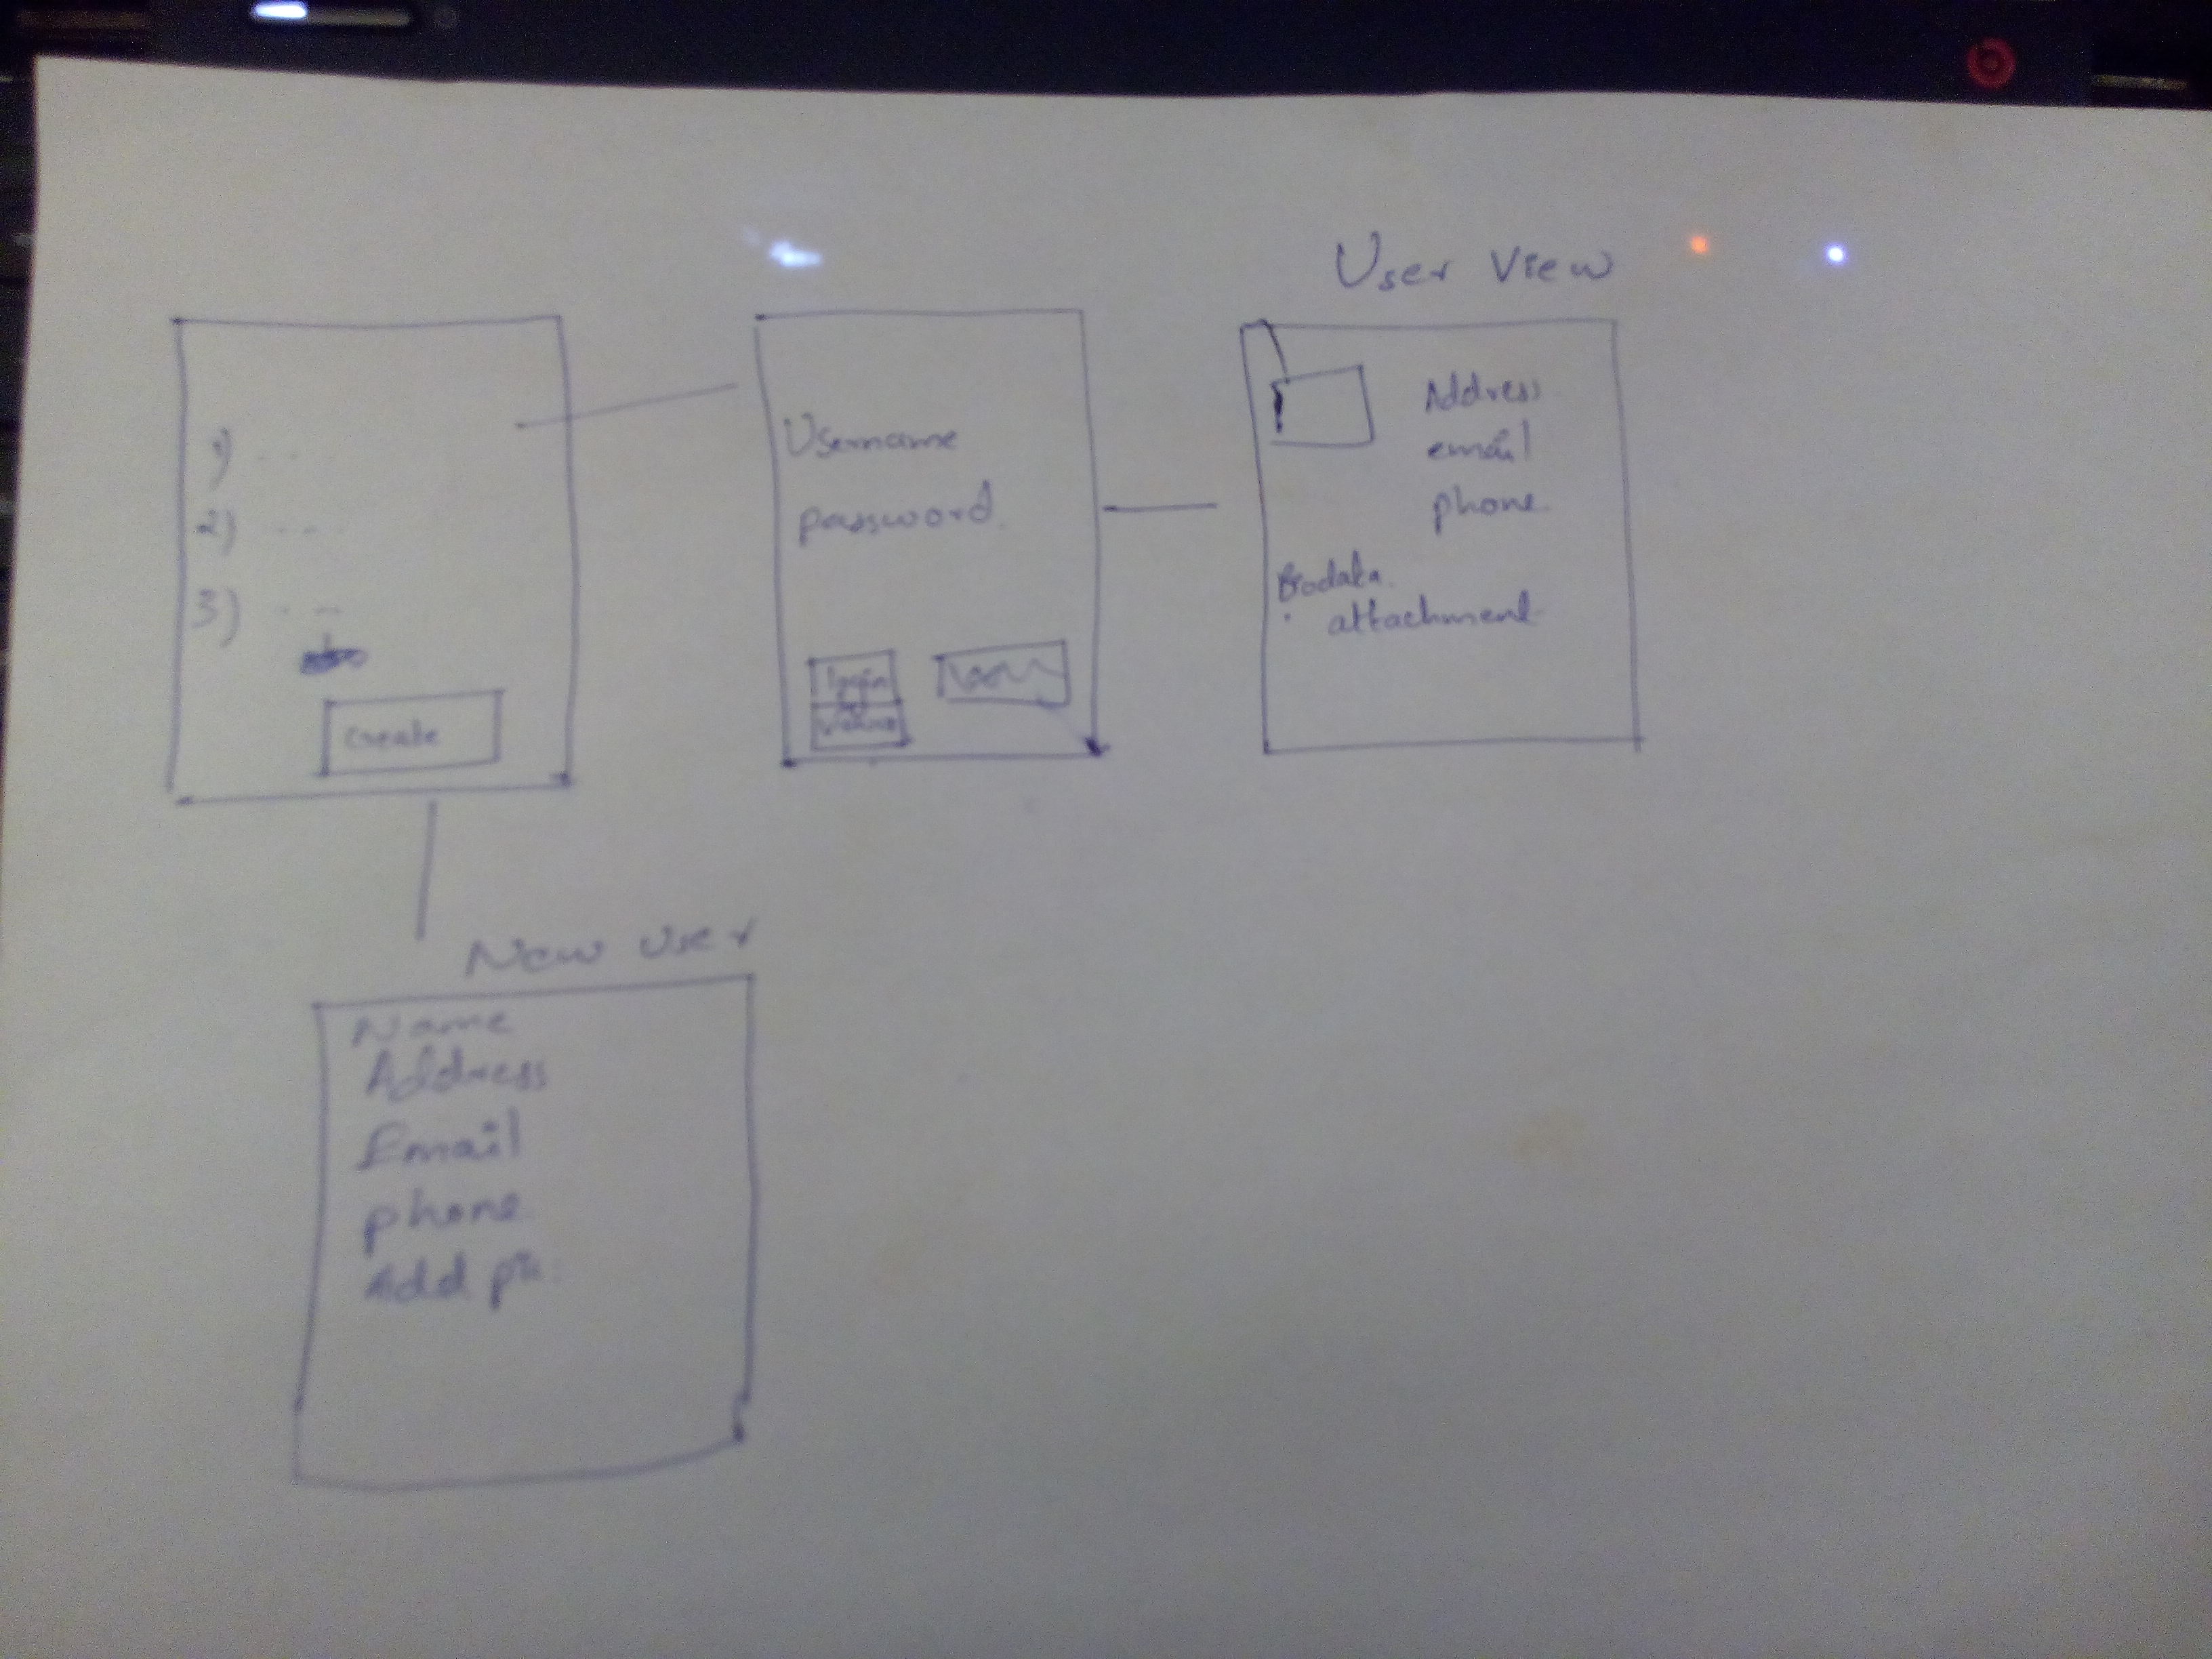 User View
1) - - -
2) - - -
3) - - -
Create
Username
password.
login
Address
email
phone.
Biodata.
attachment
New User
Name
Address
Email
phone
Add pic